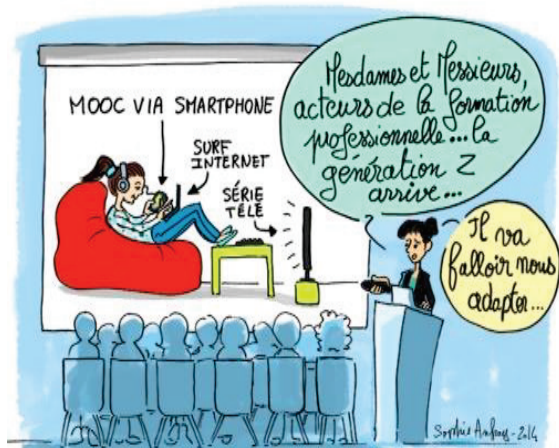 MOOC VIA SMARTPHONE
SURF
INTERNET
SÉRIE
TÉLÉ
Mesdames et Messieurs,
acteurs de la formation
professionnelle... la
génération Z
arrive...
Il va
falloir nous
adapter...
Sophie